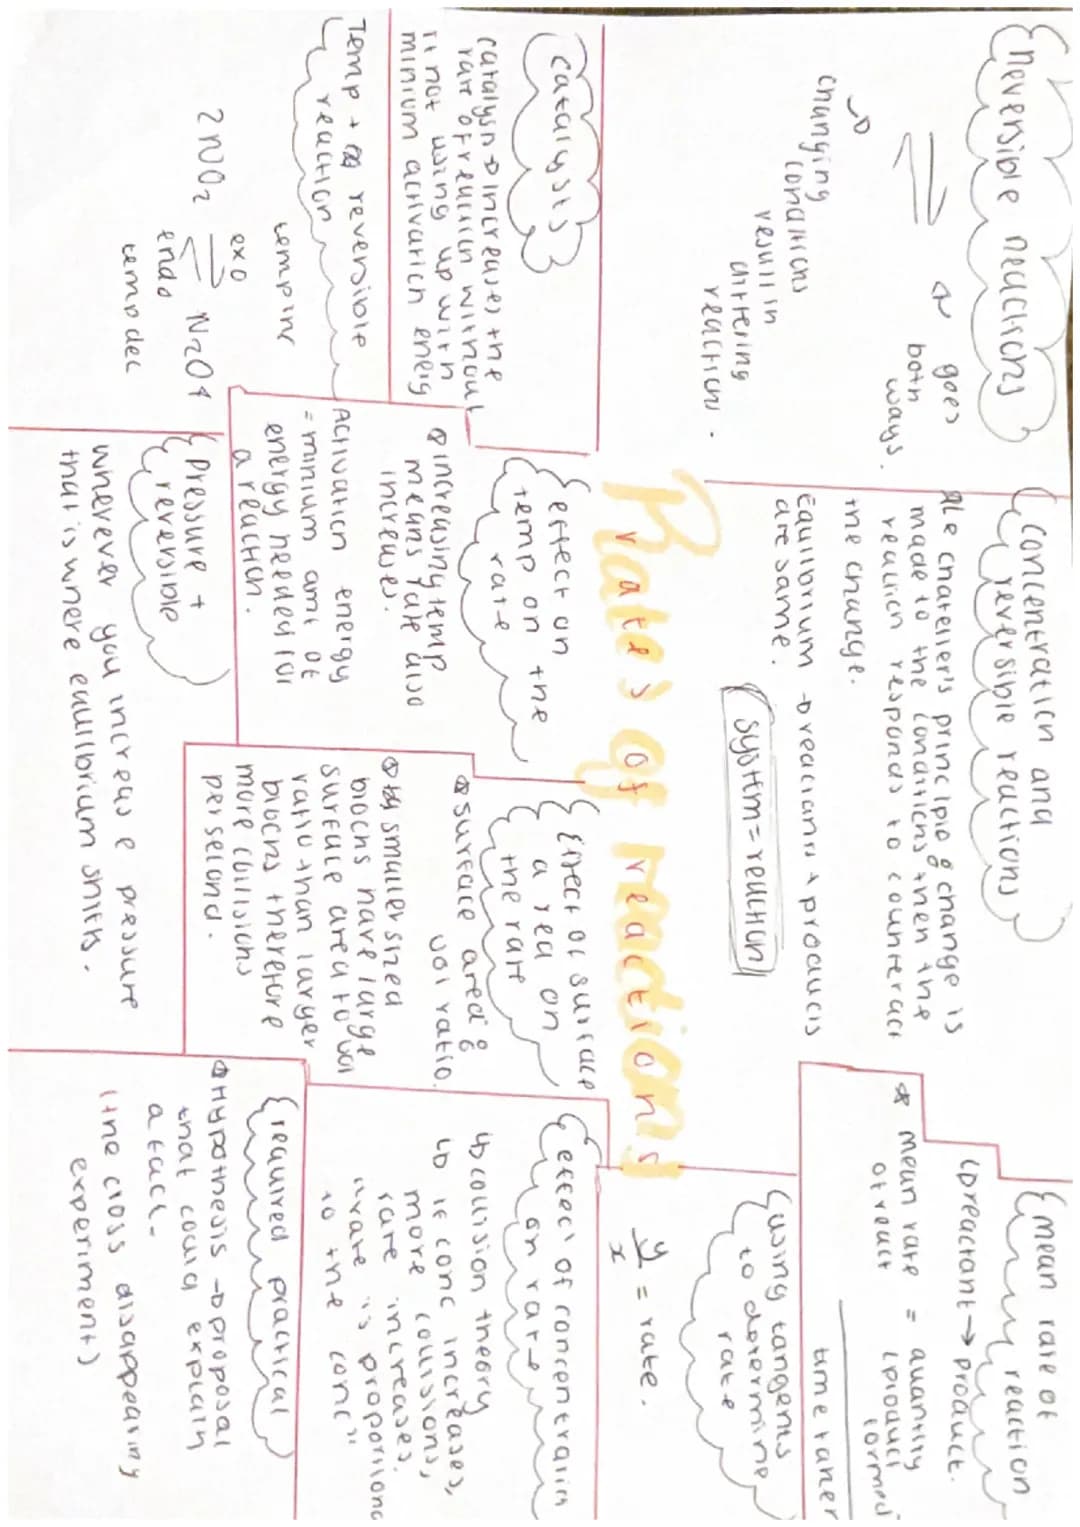 Reversible reactions
⇌ goes
both
ways.
changing
conditions
result in
differing
reactions.
Concentration and
reversible reactions
Le chatelier's principle: change is
made to the conditions then the
reaction responds to counteract
the change.
Equilibrium → reactants + products
are same.
system = reaction
mean rate of
reaction
↳ reactant → product.
mean rate = quantity
of react (product
formed
time taken
Rates of reactions
catalysts
catalyst → increases the
rate of reaction without
it not using up with
minium activation energ
effect on
temp on the
rate
increasing temp
means rate also
increases.
Activation energy
= minium amt of
energy needed for
a reaction.
Effect of surface
area on
the rate
surface area:
vol ratio.
smaller sized
blocks have large
surface area to vol
ratio than larger
blocks therefore
more collisions
per second.
using tangents
to determine
rate
y/x = rate.
effect of concentration
on rate
↳ collision theory
↳ if conc increases,
more collisions,
rate increases.
"rate is proportional
to the conc"
Temp + reversible
reaction
temp inc
exo
2NO2 ⇌ N2O4
endo
temp dec
Pressure +
reversible
whenever you increase pressure
that is where equilibrium shifts.
required practical
Hypothesis → proposal
that could explain
a fact-
(the cross disappearing
experiment)